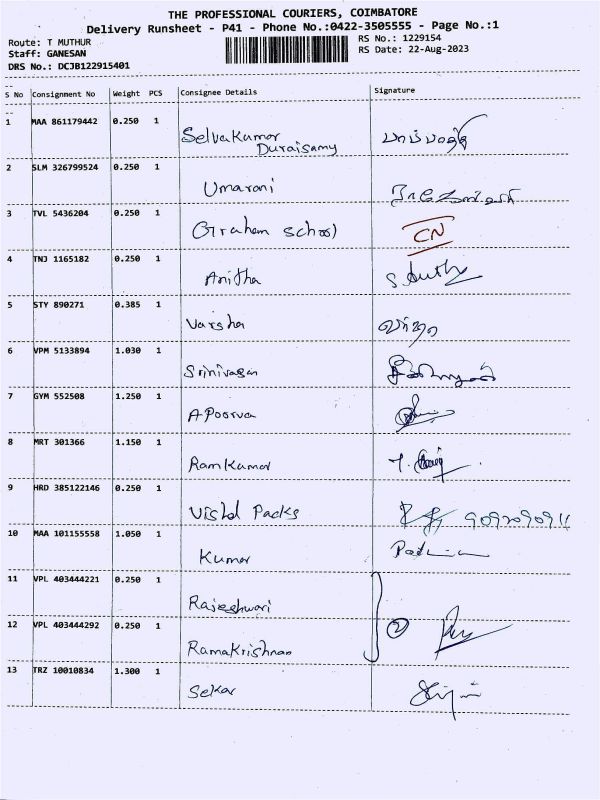 THE PROFESSIONAL COURIERS, COIMBATORE
Delivery Runsheet - P41 - Phone No.:0422-3505555 - Page No.:1
Route: T MUTHUR RS No.: 1229154
Staff: GANESAN RS Date: 22-Aug-2023
DRS No.: DCJB122915401
S No Consignment No Weight PCS Consignee Details Signature
1 MAA 861179442 0.250 1 Selvakumar
Duraisamy
2 SLM 326799524 0.250 1 Umarani
3 TVL 5436204 0.250 1 Graham school CN
4 TNJ 1165182 0.250 1 Anitha
5 STY 890271 0.385 1 Varsha வர்ஷா
6 VPM 5133894 1.030 1 Srinivasan
7 GYM 552508 1.250 1 APoorva
8 MRT 301366 1.150 1 Ramkumar
9 HRD 385122146 0.250 1 Packs
10 MAA 101155558 1.050 1 Kumar
11 VPL 403444221 0.250 1 Rajeshwari
12 VPL 403444292 0.250 1 Ramakrishnan 2
13 TRZ 10010834 1.300 1 Sekar